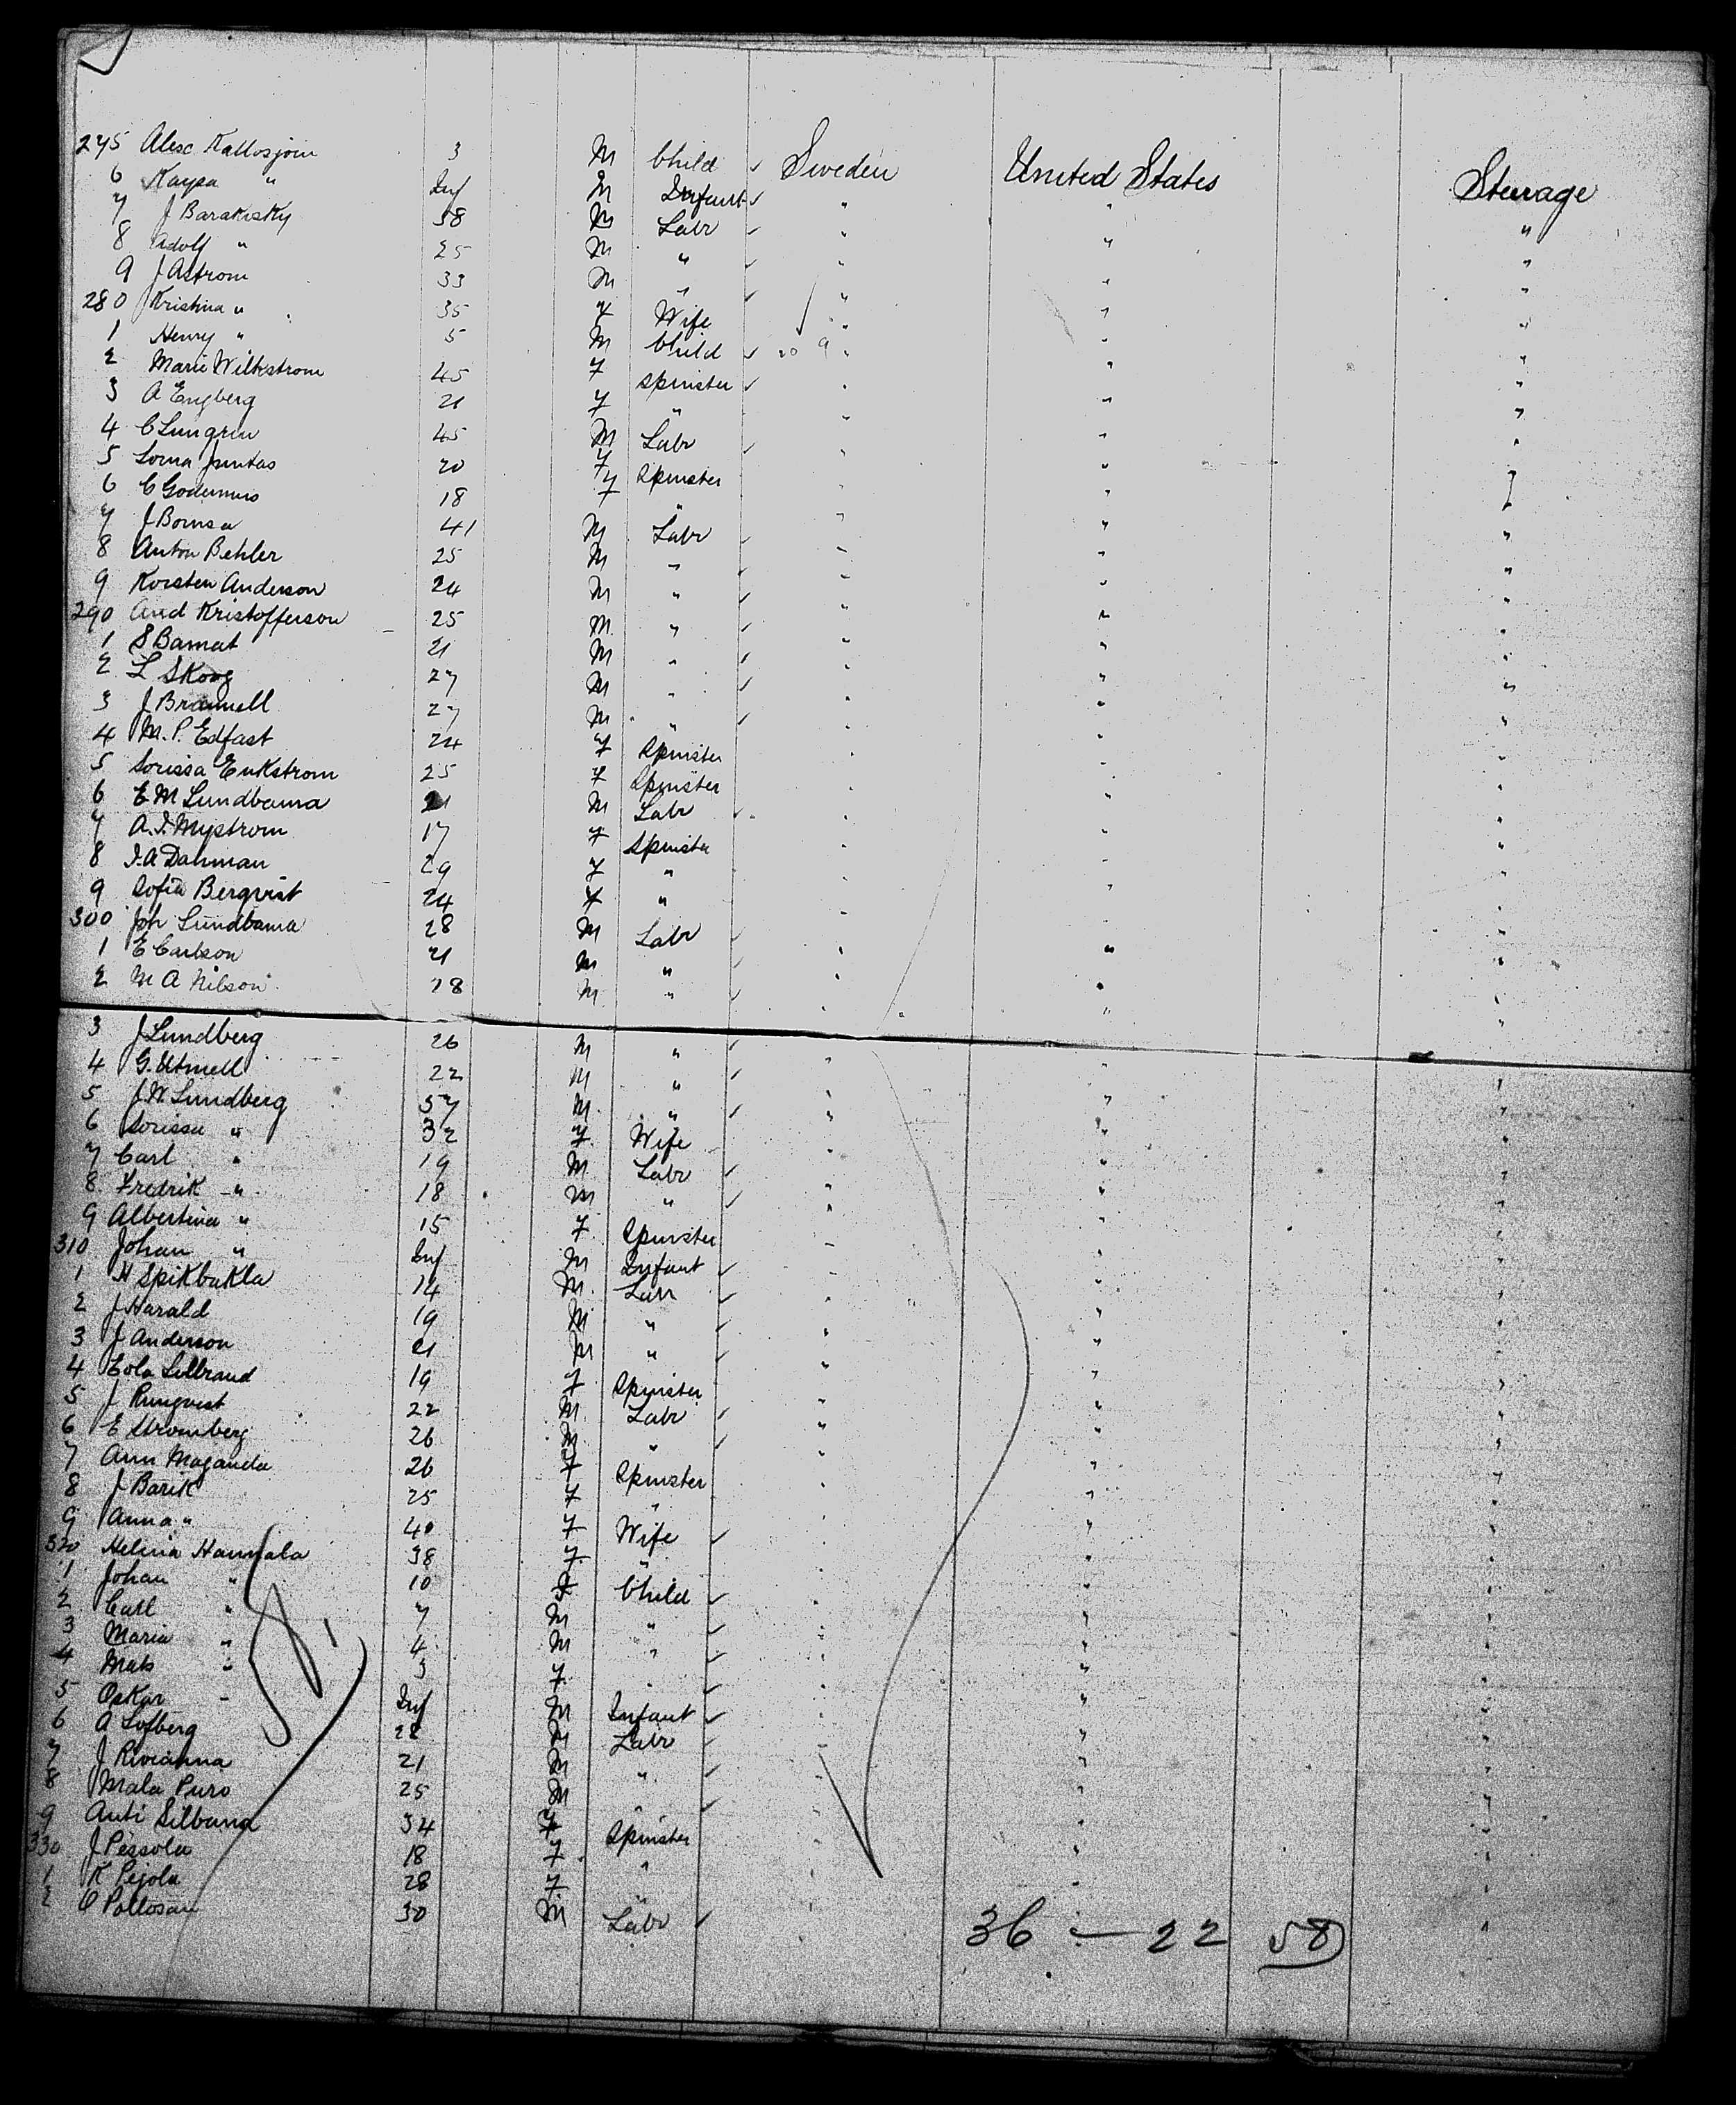 275 Alesc Kallosjoin 3 M Child Sweden United States Steerage
6 Kaysa " Inf M Infant " " "
7 J Barakisky 38 M Labr " " "
8 Adolf " 25 M " " " "
9 J Astrom 33 M " " " "
280 Kristina " 35 F Wife " " "
1 Henry " 5 M Child " " "
2 Marie Wilkstrom 45 F Spinster " " "
3 A Engberg 21 F " " " "
4 C Lungren 45 M Labr " " "
5 Lorna Juntas 20 F Spinster " " "
6 C Godenius 18 F " " " "
7 J Bomsa 41 M Labr " " "
8 Anton Behler 25 M " " " "
9 Korsten Anderson 24 M " " " "
290 And Kristofferson 25 M " " " "
1 S Bamat 21 M " " " "
2 L Skoog 27 M " " " "
3 J Brannell 27 M " " " "
4 M. P. Edfast 24 F Spinster " " "
5 Lorissa Enkstrom 25 F Spinster " " "
6 E M Lundbama 21 M Labr " " "
7 A. I. Mystrom 17 F Spinster " " "
8 I. A Dahman 29 F " " " "
9 Sofia Berqvist 24 F " " " "
300 Joh Lundbama 28 M Labr " " "
1 E Carlson 21 M " " " "
2 M A Nilson 28 M " " " "
3 J Lundberg 26 M " " " "
4 G. Utmell 22 M " " " "
5 J. W. Lundberg 57 M " " " "
6 Lorissa " 32 F Wife " " "
7 Carl " 19 M Labr " " "
8 Fredrik " 18 M " " " "
9 Albertina " 15 F Spinster " " "
310 Johan " Inf M Infant " " "
1 H Spikbakla 14 M Labr " " "
2 J Harald 19 M " " " "
3 J Anderson 21 M " " " "
4 Eola Lillbrand 19 F Spinster " " "
5 J Runqvest 22 M Labr " " "
6 E Stromberg 26 M " " " "
7 Ann Maganda 26 F Spinster " " "
8 J Barik 25 F " " " "
9 Anna " 40 F Wife " " "
320 Helina Hannala 38 F " " " "
1 Johan " 10 F Child " " "
2 Carl " 7 M " " " "
3 Maria " 4 M " " " "
4 Mats " 3 F " " " "
5 Oskar " Inf M Infant " " "
6 A Lofberg 22 M Labr " " "
7 J Rivianna 21 M " " " "
8 Mala Puro 25 M " " " "
9 Anti Silbana 34 F Spinster " " "
330 J Pessola 18 F " " " "
1 K Pejola 28 F " " " "
2 O Pallosan 30 M Labr " " "
36 — 22 58